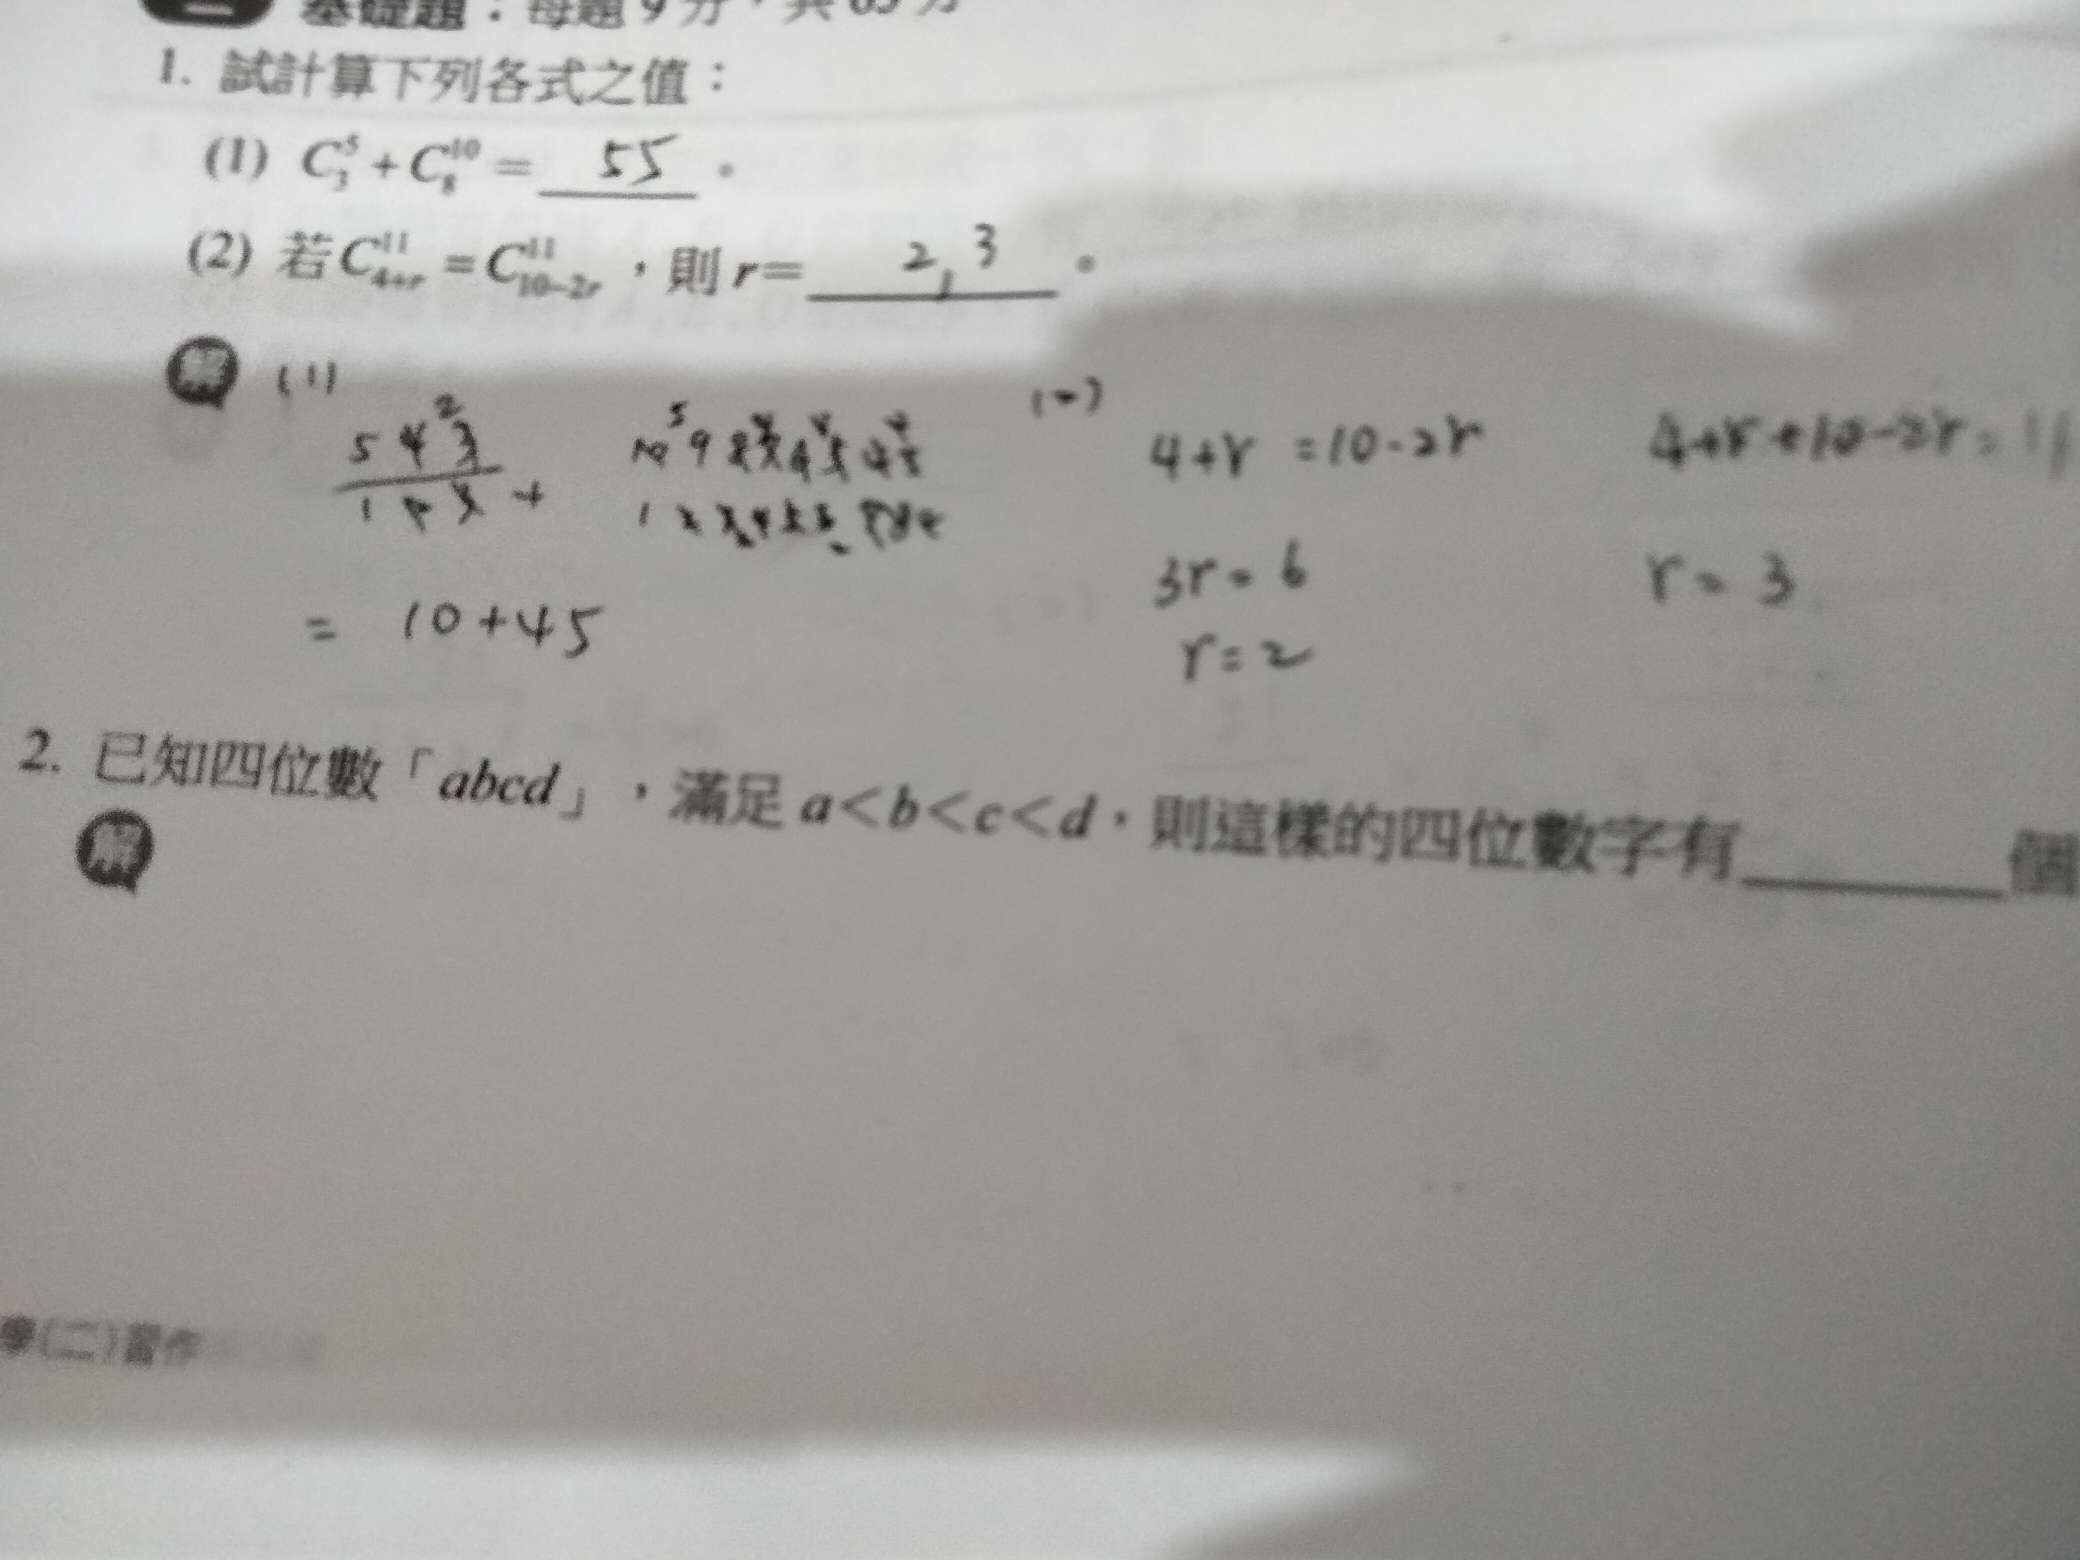 基礎題：每題9分，共63分
1. 試計算下列各式之值：
(1) C⁵₃ + C¹⁰₈ = 55 。
(2) 若 C¹¹₄₊ᵣ = C¹¹₁₀₋₂ᵣ ，則 r = 2, 3 。
解 (1)
5 4 3 2
1 2 3 +
= 10+45
(2)
4+r = 10-2r
3r = 6
r = 2
4+r+10-2r = 11
r = 3
2. 已知四位數「abcd」，滿足 a<b<c<d，則這樣的四位數字有______個
解
學(二)習作